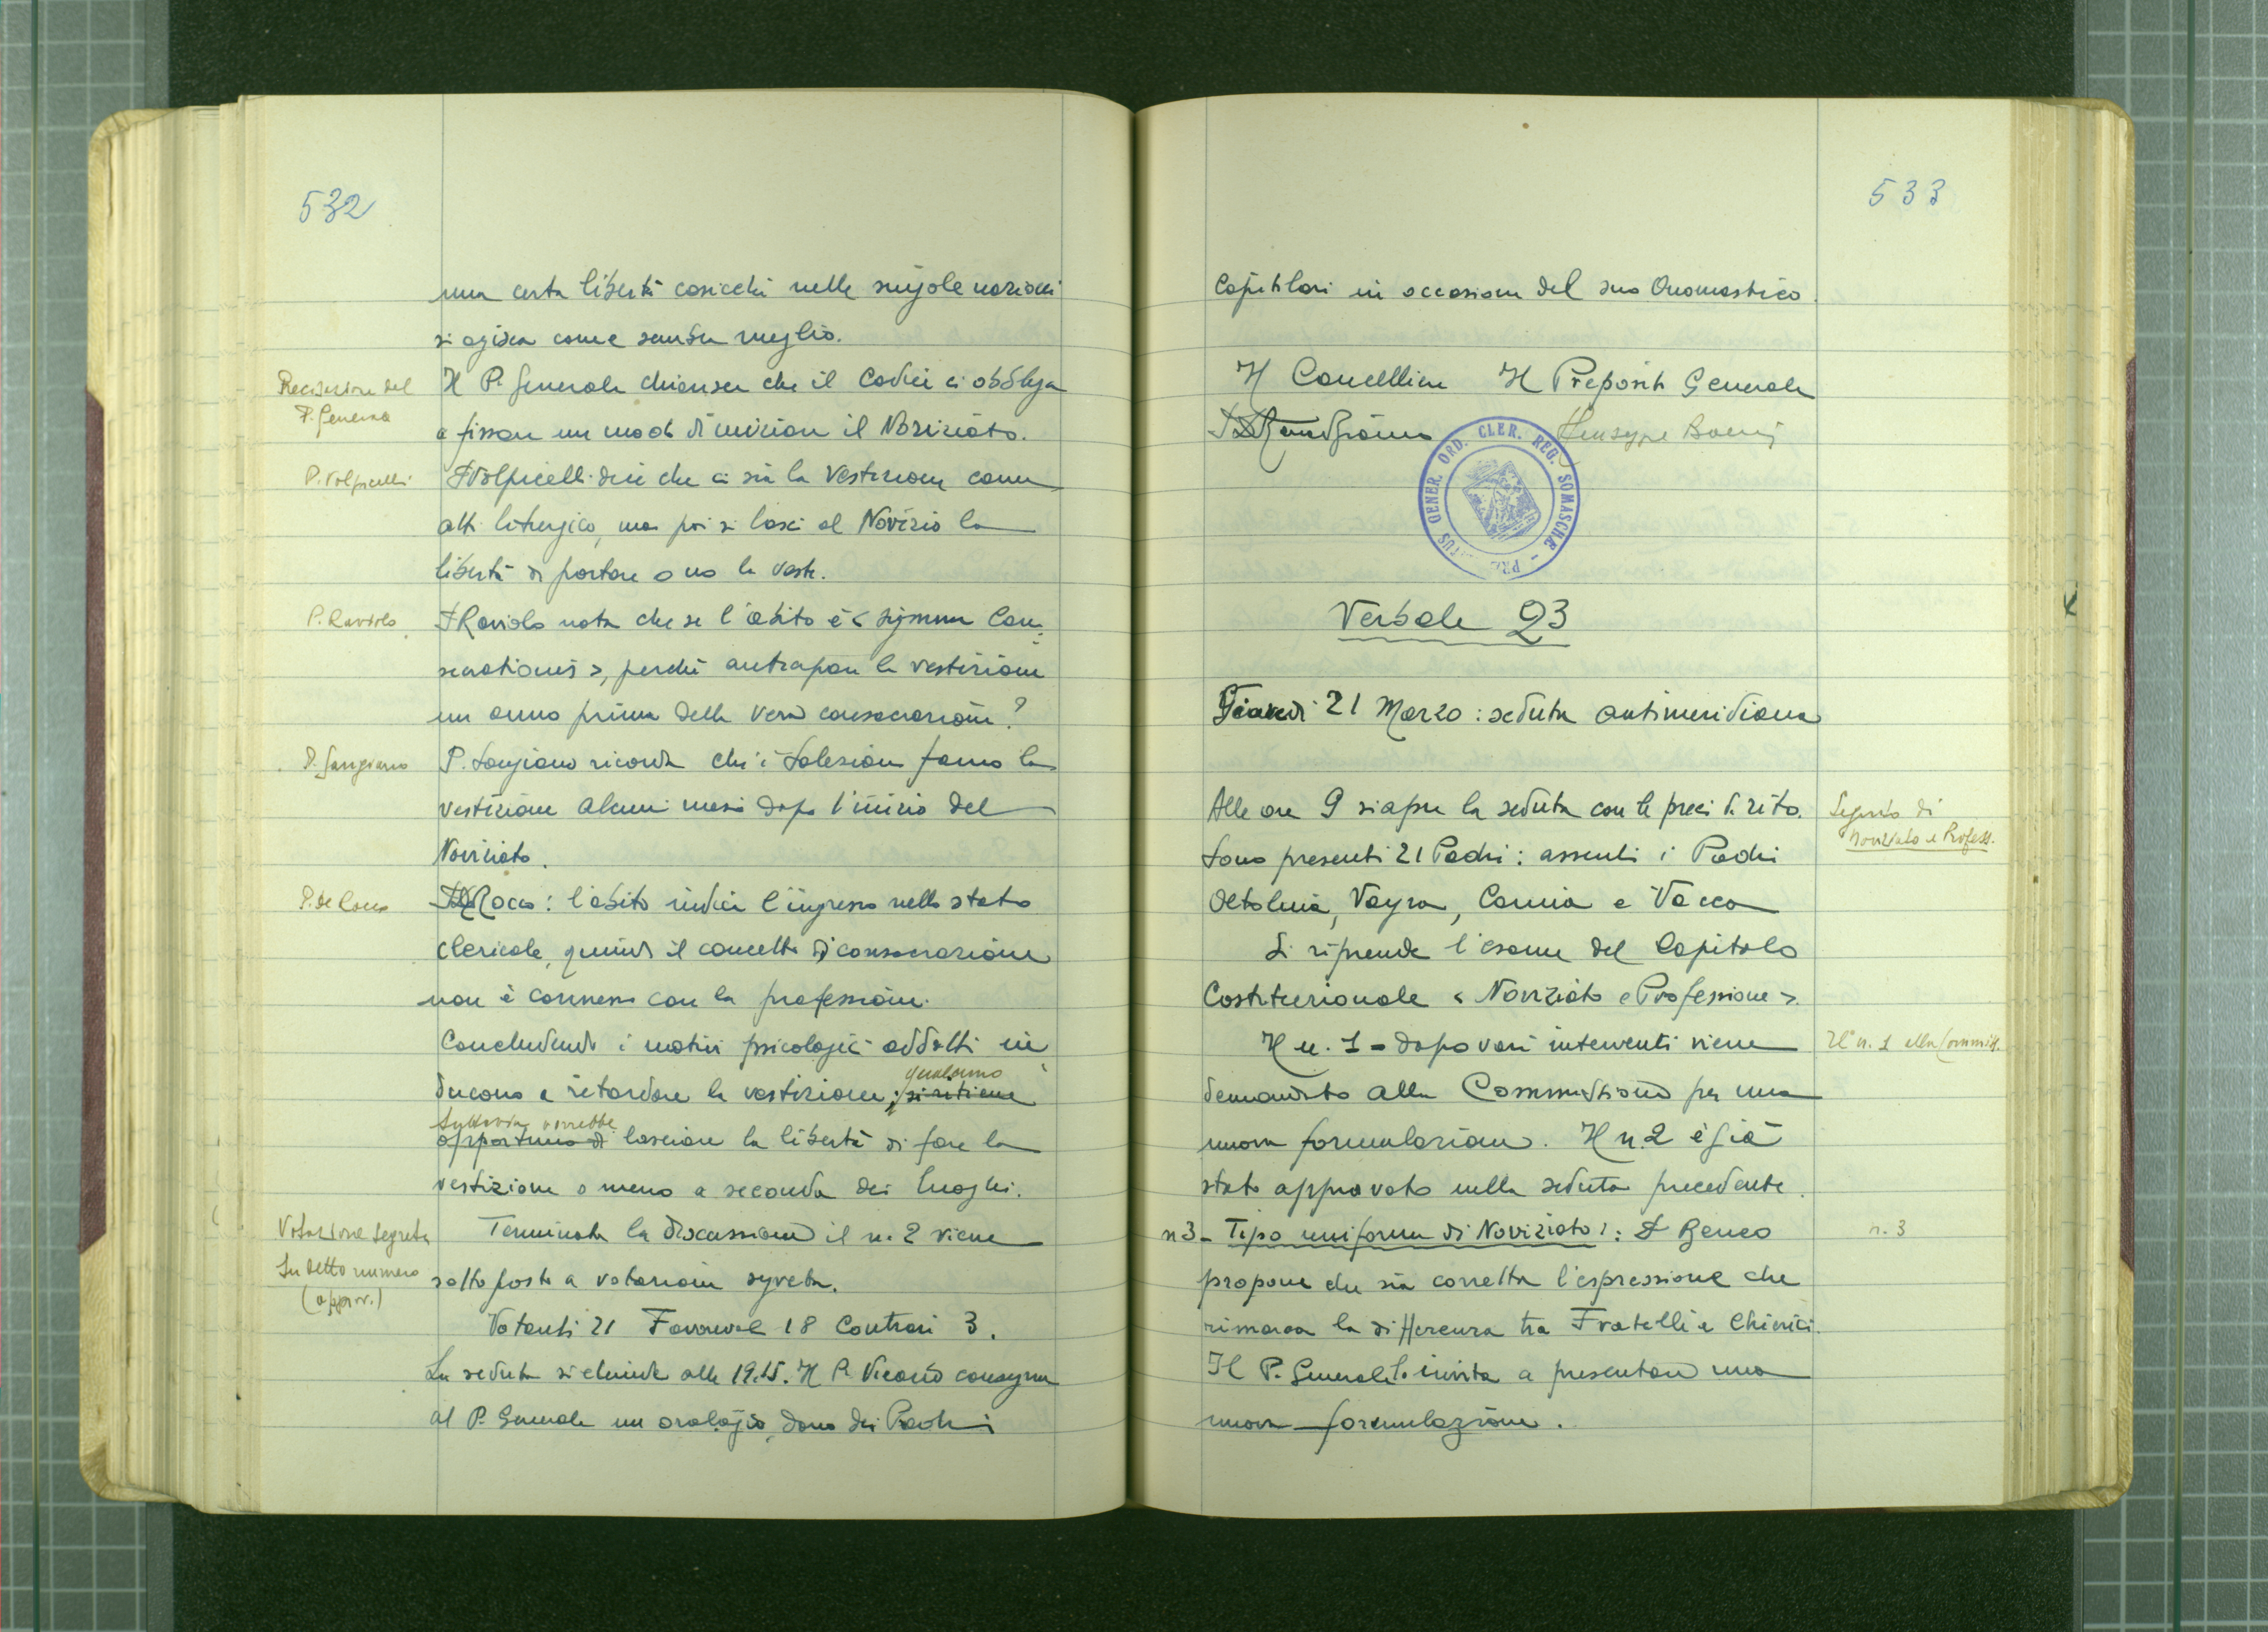 532
una certa libertà cosicché nelle singole nazioni
si agisca come sembra meglio.
Precisazione del
P. Generale
Il P. Generale chiarisce che il Codice ci obbliga
a fissare un modo di iniziare il Noviziato.
P. Volpicelli
P. Volpicelli dice che ci sia la vestizione come
atto liturgico, ma poi si lasci al Novizio la
libertà di portare o no la veste.
P. Raviolo
P. Raviolo nota che se l'abito è < signum Con-
secrationis >, perché anteporre la vestizione
un anno prima della vera consacrazione?
P. Sangiano
P. Sangiano ricorda che i Salesiani fanno la
vestizione alcuni mesi dopo l'inizio del
Noviziato.
P. de Rocco
P. De Rocco: l'abito indica l'ingresso nello stato
clericale, quindi il concetto di consacrazione
non è connesso con la professione.
Concludendo i motivi psicologici addotti in-
ducono a ritardare la vestizione; si ritiene
qualcuno
tuttavia vorrebbe
opportuno di lasciare la libertà di fare la
vestizione o meno a seconda dei luoghi.
Votazione segreta
Su detto numero
(approv.)
Terminata la discussione il n. 2 viene
sottoposto a votazione segreta.
Votanti 21 Favorevoli 18 Contrari 3.
La seduta si chiude alle 19.15. Il P. Vicario consegna
al P. Generale un orologio, dono dei Padri
533
Capitolari in occasione del suo Onomastico.
Il Cancelliere Il Preposito Generale
Giuseppe Boeris
GENER. ORD. CLER. REG. SOMASCHAE -
Verbale 23
Giovedì 21 Marzo: seduta antimeridiana
Alle ore 9 si apre la seduta con le preci di rito.
Seguito di
Noviziato e Profess.
Sono presenti 21 Padri: assenti i Padri
Oltolina, Vayra, Camia e Vacca
Si riprende l'esame del Capitolo
Costituzionale < Noviziato e Professione >.
Il n. 1 - dopo vari interventi viene
Il n. 1 alla Commiss.
demandato alla Commissione per una
nuova formulazione. Il n. 2 è già
stato approvato nella seduta precedente.
n 3 - Tipo uniforme di Noviziato: P. Beneo
n. 3
propone che sia corretta l'espressione che
rimarca la differenza tra Fratelli e Chierici.
Il P. Generale lo invita a presentare una
nuova formulazione.